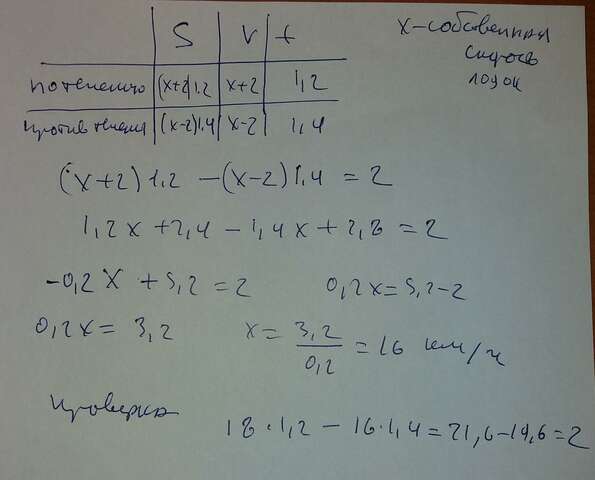 S V t
x-собственная
скорость
лодок
по течению (x+2)1,2 x+2 1,2
против течения (x-2)1,4 x-2 1,4
(x+2)1,2 -(x-2)1,4 = 2
1,2x +2,4 - 1,4x + 2,8 = 2
-0,2x + 5,2 = 2 0,2x=5,2-2
0,2x= 3,2 x= 3,2/0,2 =16 км/ч
Проверка
18·1,2 - 16·1,4=21,6-19,6=2